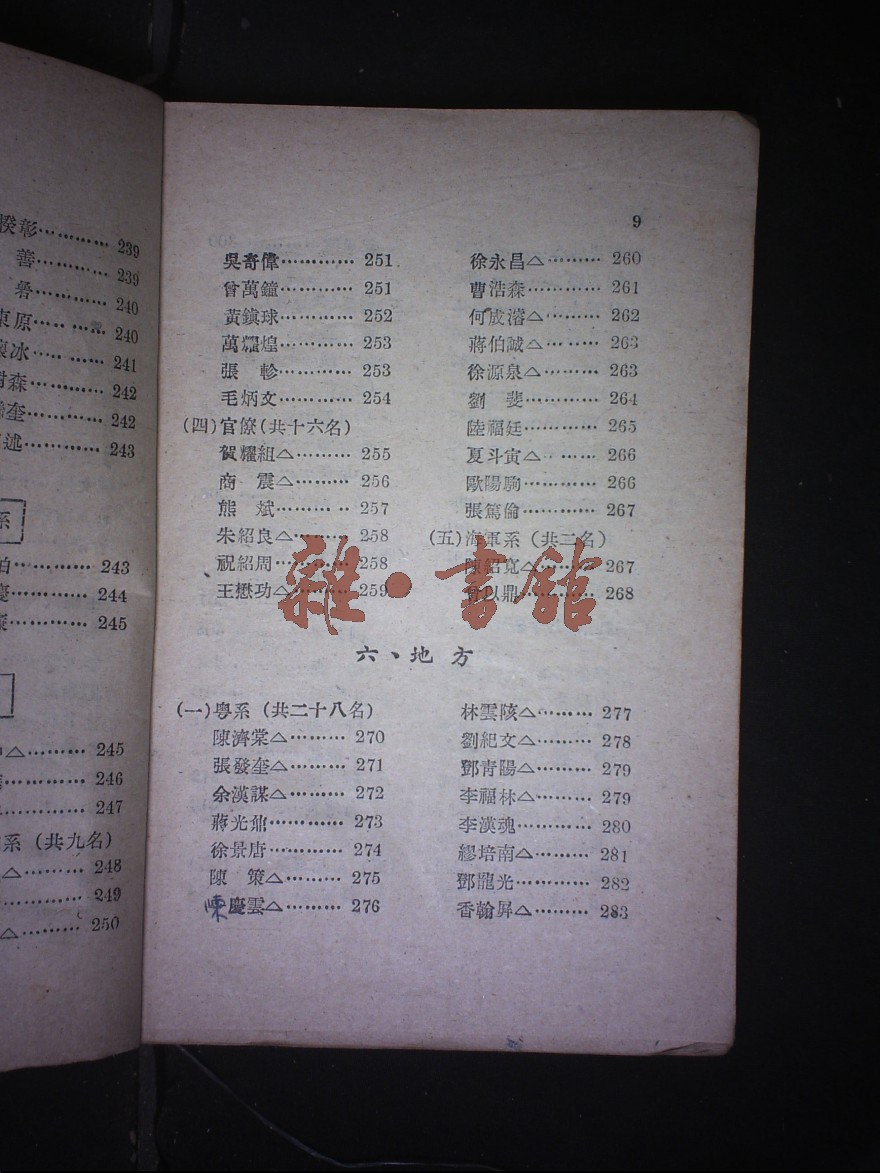 239
善………… 239
240
東原………… 240
冰………… 241
森………… 242
奎………… 242
述………… 243
系
………… 243
………… 244
………… 245
△……… 245
………… 246
………… 247
系（共九名）
△……… 248
………… 249
△……… 250
9
吳奇偉………… 251
曾萬鐘………… 251
黃鎮球………… 252
萬耀煌………… 253
張　軫………… 253
毛炳文………… 254
(四)官僚(共十六名)
賀耀組△……… 255
商　震△……… 256
熊　斌………… 257
朱紹良△……… 258
祝紹周………… 258
王懋功△……… 259
徐永昌△……… 260
曹浩森………… 261
何成濬△……… 262
蔣伯誠△……… 263
徐源泉△……… 263
劉　斐………… 264
陸福廷………… 265
夏斗寅△……… 266
歐陽駒………… 266
張篤倫………… 267
(五)海軍系（共二名）
陳紹寬△……… 267
曾以鼎………… 268
雜·書館
六、地方
(一)粵系（共二十八名）
陳濟棠△……… 270
張發奎△……… 271
余漢謀△……… 272
蔣光鼐………… 273
徐景唐………… 274
陳　策△……… 275
陳慶雲△……… 276
林雲陔△……… 277
劉紀文△……… 278
鄧青陽△……… 279
李福林△……… 279
李漢魂………… 280
繆培南△……… 281
鄧龍光………… 282
香翰屏△……… 283